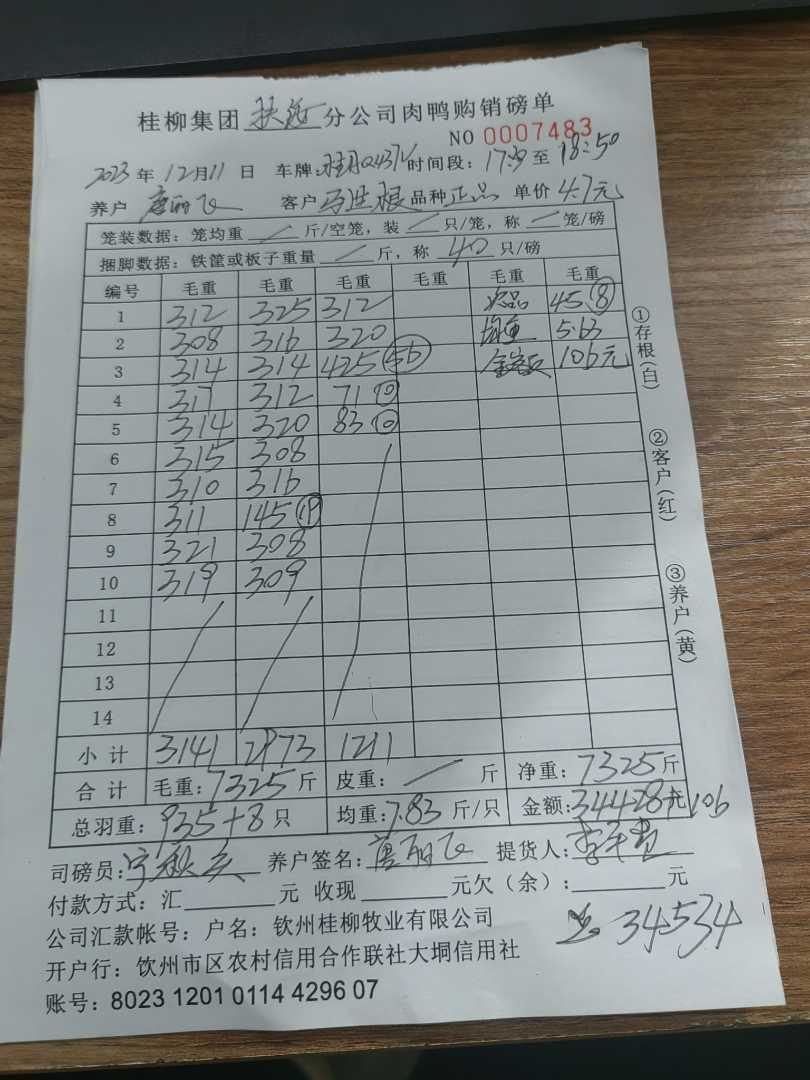 桂柳集团 分公司肉鸭购销磅单
NO 0007483
2023 年 12月11 日 车牌: 时间段: 至 18:50
养户 唐丽飞 客户 品种 正品 单价 4.7元
笼装数据: 笼均重 / 斤/空笼, 装 / 只/笼, 称 / 笼/磅
捆脚数据: 铁筐或板子重量 / 斤, 称 40 只/磅
编号 毛重 毛重 毛重 毛重 毛重 毛重
1 312 325 312 次品 45 ⑧
2 308 316 320 均重 5.63
3 314 314 425 56 金额 106元
4 317 312 71 ⑩
5 314 320 83 ⑩
6 315 308
7 310 316
8 311 145 19
9 321 308
10 319 309
11
12
13
14
小计 3141 2973 1211
合计 毛重: 7325 斤 皮重: / 斤 净重: 7325 斤
总羽重: 935+8 只 均重: 7.83 斤/只 金额: 34428元 106
司磅员: 养户签名: 唐丽飞 提货人:
付款方式: 汇 元 收现 元欠(余): 元
公司汇款帐号: 户名: 钦州桂柳牧业有限公司
34534
开户行: 钦州市区农村信用合作联社大垌信用社
账号: 8023 1201 0114 4296 07
①存根(白)
②客户(红)
③养户(黄)